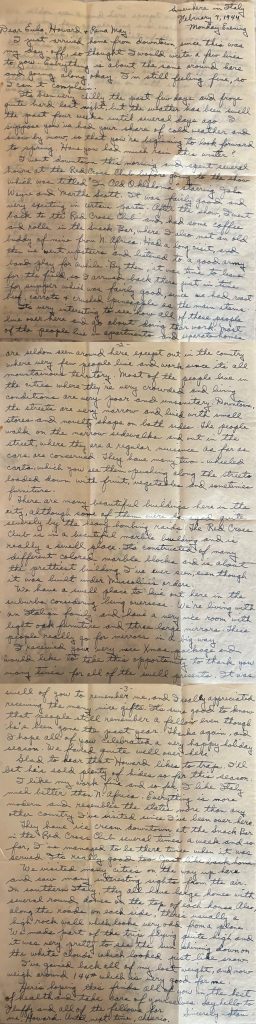 Somewhere in Italy
February 7, 1944
Monday Evening
Dear Eula, Howard, & Rena May,
I just arrived home from downtown since this was
my day off, so thought I would write a few lines
to you. Everything is about the same around here
and going along okay. I'm still feeling fine, so
I can't complain.
quite hard last night, but the weather has been swell
the past four weeks until several days ago. I
suppose you've had your share of cold weather and
snow by now, so that you're beginning to look forward
to spring. Have you had much snow this winter?
I went downtown this morning and spent several
hours at the Red Cross Club
which was titled
and Martha Scott. It was fairly good and
very exciting in certain parts. After the show, I went
back to the Red Cross Club and had some coffee
and rolls in the Snack Bar, where I also met an old
buddy of mine from N. Africa. Had a long visit, and
then I went upstairs and listened to a good army
band play for awhile. By then it was time to leave
for the field so I arrived back there just in time
for supper which was fairly good, since we had roast
beef, carrots & crushed pineapple as the main items.
It's quite interesting to see how all of these people
live over here and go about doing their work. Most
of the people live in apartments
are seldom seen around here except out in the country
where very few people live and work since it's all
mountainous territory. Most of the people live in
the cities where they are very crowded and living
conditions are very poor and unsanitary. Downtown
the streets are very narrow and lined with small
stores and novelty shops on both sides. The people
walk on the narrow sidewalks and out in the
street, where they are a regular nuisance as far as
cars are concerned. They have many two-wheeled
carts, which you see them pushing along the streets
loaded down with fruit, vegetables and sometimes
furniture.
There are many beautiful buildings here in the
city, although some of them were damaged quite
severely by the heavy bombing raids. The Red Cross
Club is in a beautiful marble building and it's
really a swell place. It's constructed of many
different colored marble blocks and is about
the prettiest building I've ever seen, even though
it was built under Mussolini's orders.
We have a swell place to live out here in the
suburbs, considering living overseas. We're living with
an Italian family and have a very nice room with
light oak furniture and three large mirrors. These
people really go for mirrors in a big way.
I received your very nice Xmas package and
would like to take this opportunity to thank you
many times for all of the swell gifts. It was
swell of you to remember me, and I really appreciated
receiving the many nice gifts. It's sure good to know
that people still remember a fellow even though
he's been gone the past year. Thanks again, and
I hope all of you celebrated a very happy holiday
season. We fared quite well over here.
Glad to hear that Howard likes to trap. I'll
bet he's sold plenty of hides so far this season.
I like my work fine and so far, I like Italy
much better than N. Africa. Everything is more
modern and resembles the states more than any
other country I've visited since I've been over here.
They have ice cream downtown at the Snack Bar
in the Red Cross Club several times a week and so
far, I've managed to be there twice when it was
served. It's really good too.
We visited many cities on the way up here
and saw many interesting sights from the air.
In southern Italy, they all have large houses with
several round domes on the top of each house. Also
along the roads on each side, there's usually a
high rock wall which looks very odd from a plane.
We made part of the trip flying quite high and
it was very pretty to see the sun shining down on
the white clouds which looked just like snow.
I've gained back all of my lost weight, and now
weigh around 144 which is very good for me.
Here's hoping this finds all of you in the best
of health and take care of yourselves. Say hello to
Fluffy and all of the folks for
me Howard. Until next time, cheerio.
Sincerely, Stan